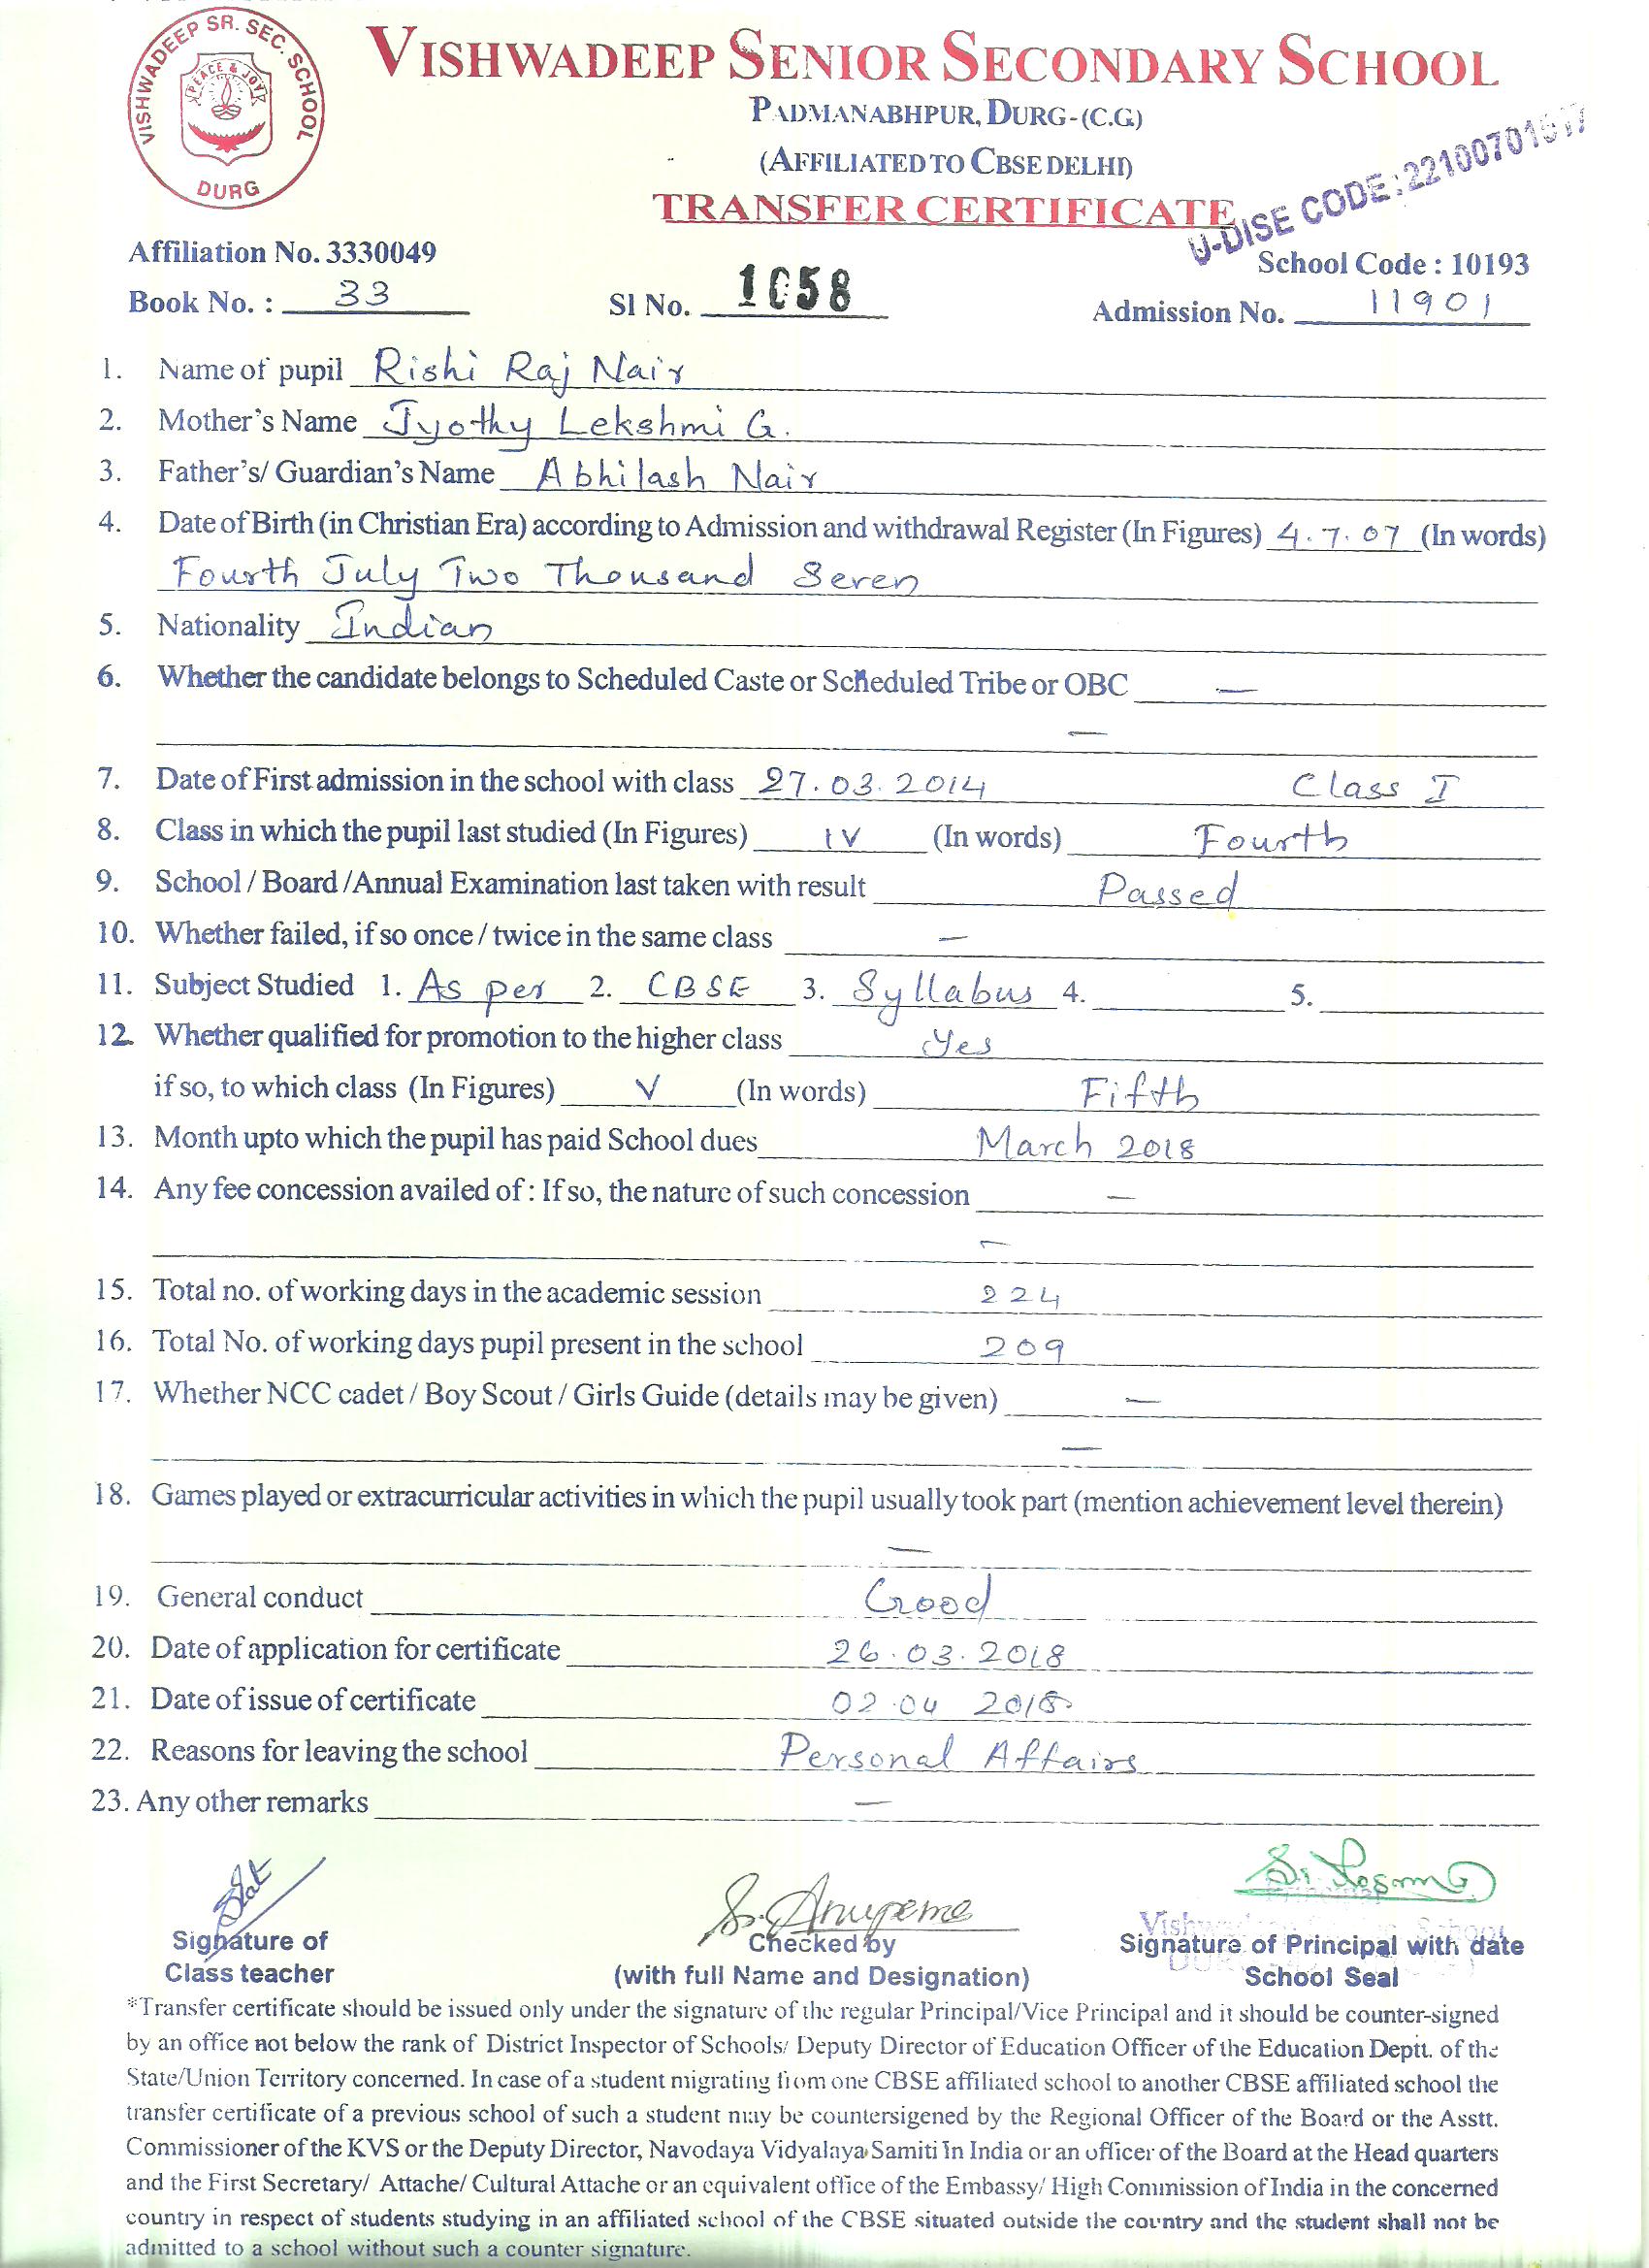 VISHWADEEP SR. SEC. SCHOOL
PEACE & JOY
DURG
VISHWADEEP SENIOR SECONDARY SCHOOL
PADMANABHPUR, DURG-(C.G.)
(AFFILIATED TO CBSE DELHI)
TRANSFER CERTIFICATE
U-DISE CODE:
Affiliation No. 3330049
School Code : 10193
Book No. : 33 Sl No. 1058 Admission No. 11901
1. Name of pupil Rishi Raj Nair
2. Mother's Name Jyothy Lekshmi G.
3. Father's/ Guardian's Name Abhilash Nair
4. Date of Birth (in Christian Era) according to Admission and withdrawal Register (In Figures) 4.7.07 (In words)
Fourth July Two Thousand Seven
5. Nationality Indian
6. Whether the candidate belongs to Scheduled Caste or Scheduled Tribe or OBC —
—
7. Date of First admission in the school with class 27.03.2014 Class I
8. Class in which the pupil last studied (In Figures) IV (In words) Fourth
9. School / Board /Annual Examination last taken with result Passed
10. Whether failed, if so once / twice in the same class —
11. Subject Studied 1. As per 2. CBSE 3. Syllabus 4. 5.
12. Whether qualified for promotion to the higher class Yes
if so, to which class (In Figures) V (In words) Fifth
13. Month upto which the pupil has paid School dues March 2018
14. Any fee concession availed of : If so, the nature of such concession —
—
15. Total no. of working days in the academic session 224
16. Total No. of working days pupil present in the school 209
17. Whether NCC cadet / Boy Scout / Girls Guide (details may be given) —
—
18. Games played or extracurricular activities in which the pupil usually took part (mention achievement level therein)
—
19. General conduct Good
20. Date of application for certificate 26.03.2018
21. Date of issue of certificate 02.04 2018
22. Reasons for leaving the school Personal Affairs
23. Any other remarks —
Sr. Anupema
Signature of Checked by Signature of Principal with date
Class teacher (with full Name and Designation) School Seal
*Transfer certificate should be issued only under the signature of the regular Principal/Vice Principal and it should be counter-signed
by an office not below the rank of District Inspector of Schools/ Deputy Director of Education Officer of the Education Deptt. of the
State/Union Territory concerned. In case of a student migrating from one CBSE affiliated school to another CBSE affiliated school the
transfer certificate of a previous school of such a student may be countersigened by the Regional Officer of the Board or the Asstt.
Commissioner of the KVS or the Deputy Director, Navodaya Vidyalaya Samiti in India or an officer of the Board at the Head quarters
and the First Secretary/ Attache/ Cultural Attache or an equivalent office of the Embassy/ High Commission of India in the concerned
country in respect of students studying in an affiliated school of the CBSE situated outside the country and the student shall not be
admitted to a school without such a counter signature.